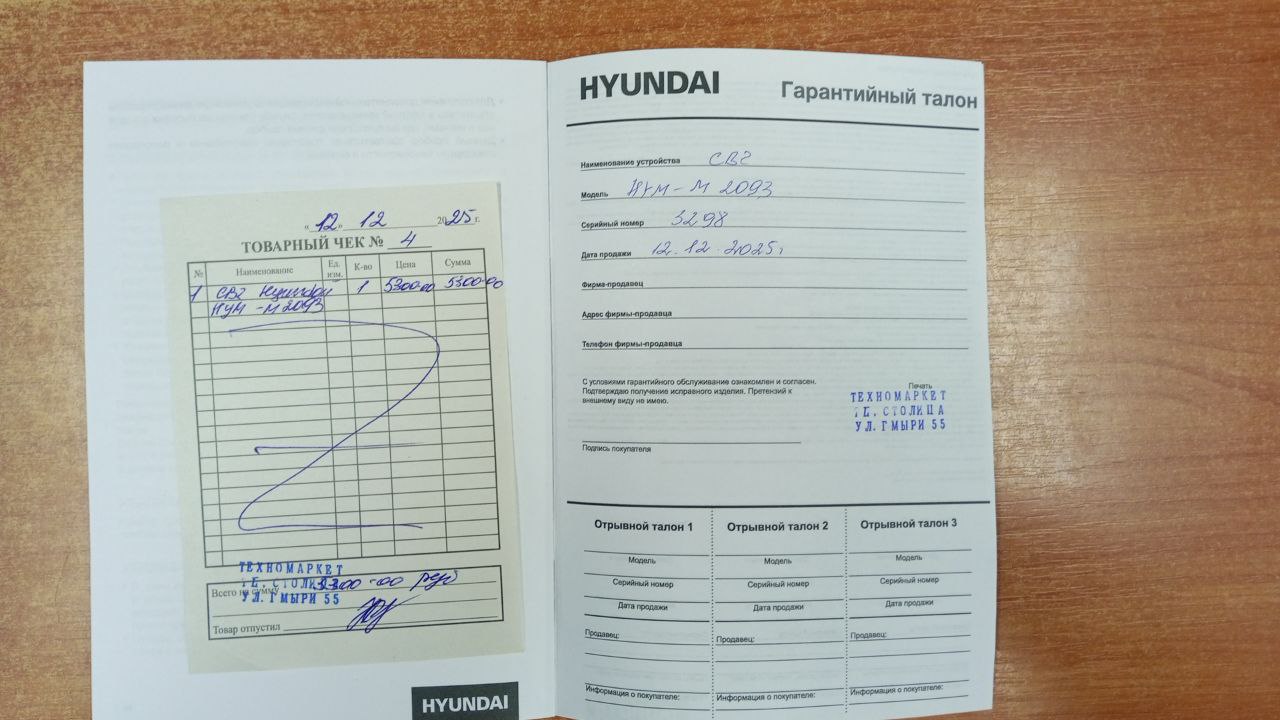 « 12 » 12 2025 г.
ТОВАРНЫЙ ЧЕК № 4
№ Наименование Ед. изм. К-во Цена Сумма
1 СВЧ Хундай 1 5300-00 5300-00
HYM-M 2093
ТЕХНОМАРКЕТ
СТОЛИЦА
УЛ. ГМЫРИ 55
Всего на сумму 5300-00 руб
Товар отпустил
HYUNDAI
HYUNDAI
Гарантийный талон
Наименование устройства СВЧ
Модель HYM-M 2093
Серийный номер 3298
Дата продажи 12.12.2025г
Фирма-продавец
Адрес фирмы-продавца
Телефон фирмы-продавца
С условиями гарантийного обслуживание ознакомлен и согласен.
Подтверждаю получение исправного изделия. Претензий к
внешнему виду не имею.
Печать
ТЕХНОМАРКЕТ
СТОЛИЦА
УЛ. ГМЫРИ 55
Подпись покупателя
Отрывной талон 1 Отрывной талон 2 Отрывной талон 3
Модель Модель Модель
Серийный номер Серийный номер Серийный номер
Дата продажи Дата продажи Дата продажи
Продавец: Продавец: Продавец:
Информация о покупателе: Информация о покупателе: Информация о покупателе: